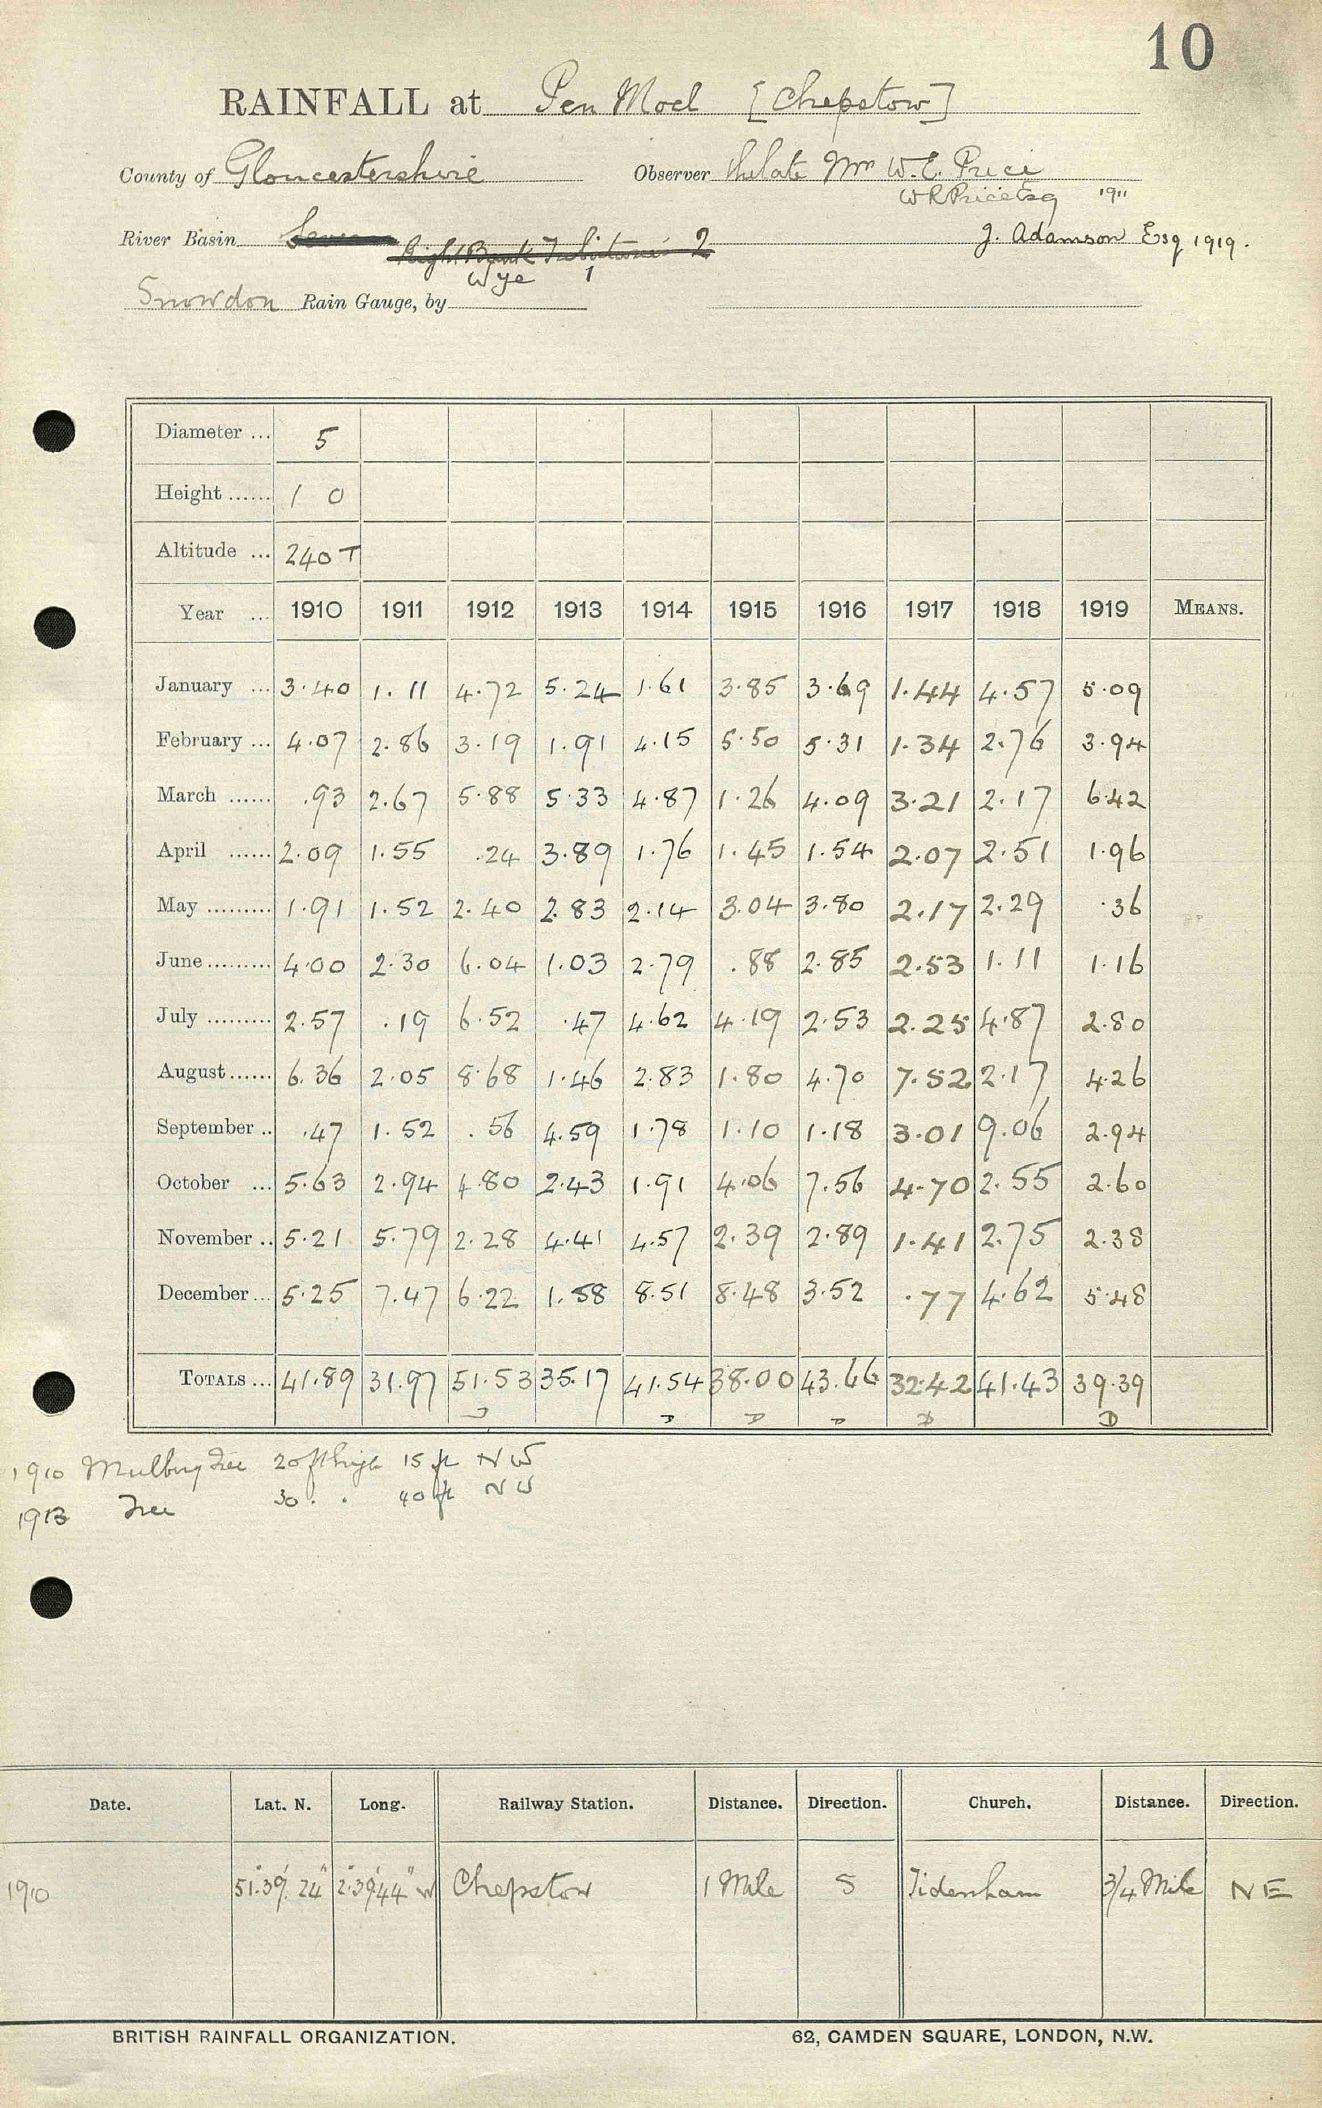 10
RAINFALL at Pen Moel [Chepstow]
County of Gloucestershire Observer The late Mr W. E. Price
W R Price Esq 1911
River Basin Severn J. Adamson Esq 1919.
Right Bank Tributaries 2
Wye 1
Snowdon Rain Gauge, by
Diameter ... 5
Height ...... 1 0
Altitude ... 240 T
Year ... 1910 1911 1912 1913 1914 1915 1916 1917 1918 1919 MEANS.
January ... 3.40 1.11 4.72 5.24 1.61 3.85 3.69 1.44 4.57 5.09
February ... 4.07 2.86 3.19 1.91 4.15 5.50 5.31 1.34 2.76 3.94
March ...... .93 2.67 5.88 5.33 4.87 1.26 4.09 3.21 2.17 6.42
April ...... 2.09 1.55 .24 3.89 1.76 1.45 1.54 2.07 2.51 1.96
May ......... 1.91 1.52 2.40 2.83 2.14 3.04 3.80 2.17 2.29 .36
June ......... 4.00 2.30 6.04 1.03 2.79 .88 2.85 2.53 1.11 1.16
July ......... 2.57 .19 6.52 .47 4.62 4.19 2.53 2.25 4.87 2.80
August ...... 6.36 2.05 8.68 1.46 2.83 1.80 4.70 7.52 2.17 4.26
September .. .47 1.52 .56 4.59 1.78 1.10 1.18 3.01 9.06 2.94
October ... 5.63 2.94 4.80 2.43 1.91 4.06 7.56 4.70 2.55 2.60
November .. 5.21 5.79 2.28 4.41 4.57 2.39 2.89 1.41 2.75 2.38
December ... 5.25 7.47 6.22 1.58 8.51 8.48 3.52 .77 4.62 5.48
TOTALS ... 41.89 31.97 51.53 35.17 41.54 38.00 43.66 32.42 41.43 39.39
D D D D D D
1910 Mulberry Tree 20 ft high 15 ft NW
1913 Tree 30 . . 40 ft NW
Date. Lat. N. Long. Railway Station. Distance. Direction. Church. Distance. Direction.
1910 51°.39'.24" 2°.39'.44" W Chepstow 1 Mile S Tidenham 3/4 Mile NE
BRITISH RAINFALL ORGANIZATION. 62, CAMDEN SQUARE, LONDON, N.W.